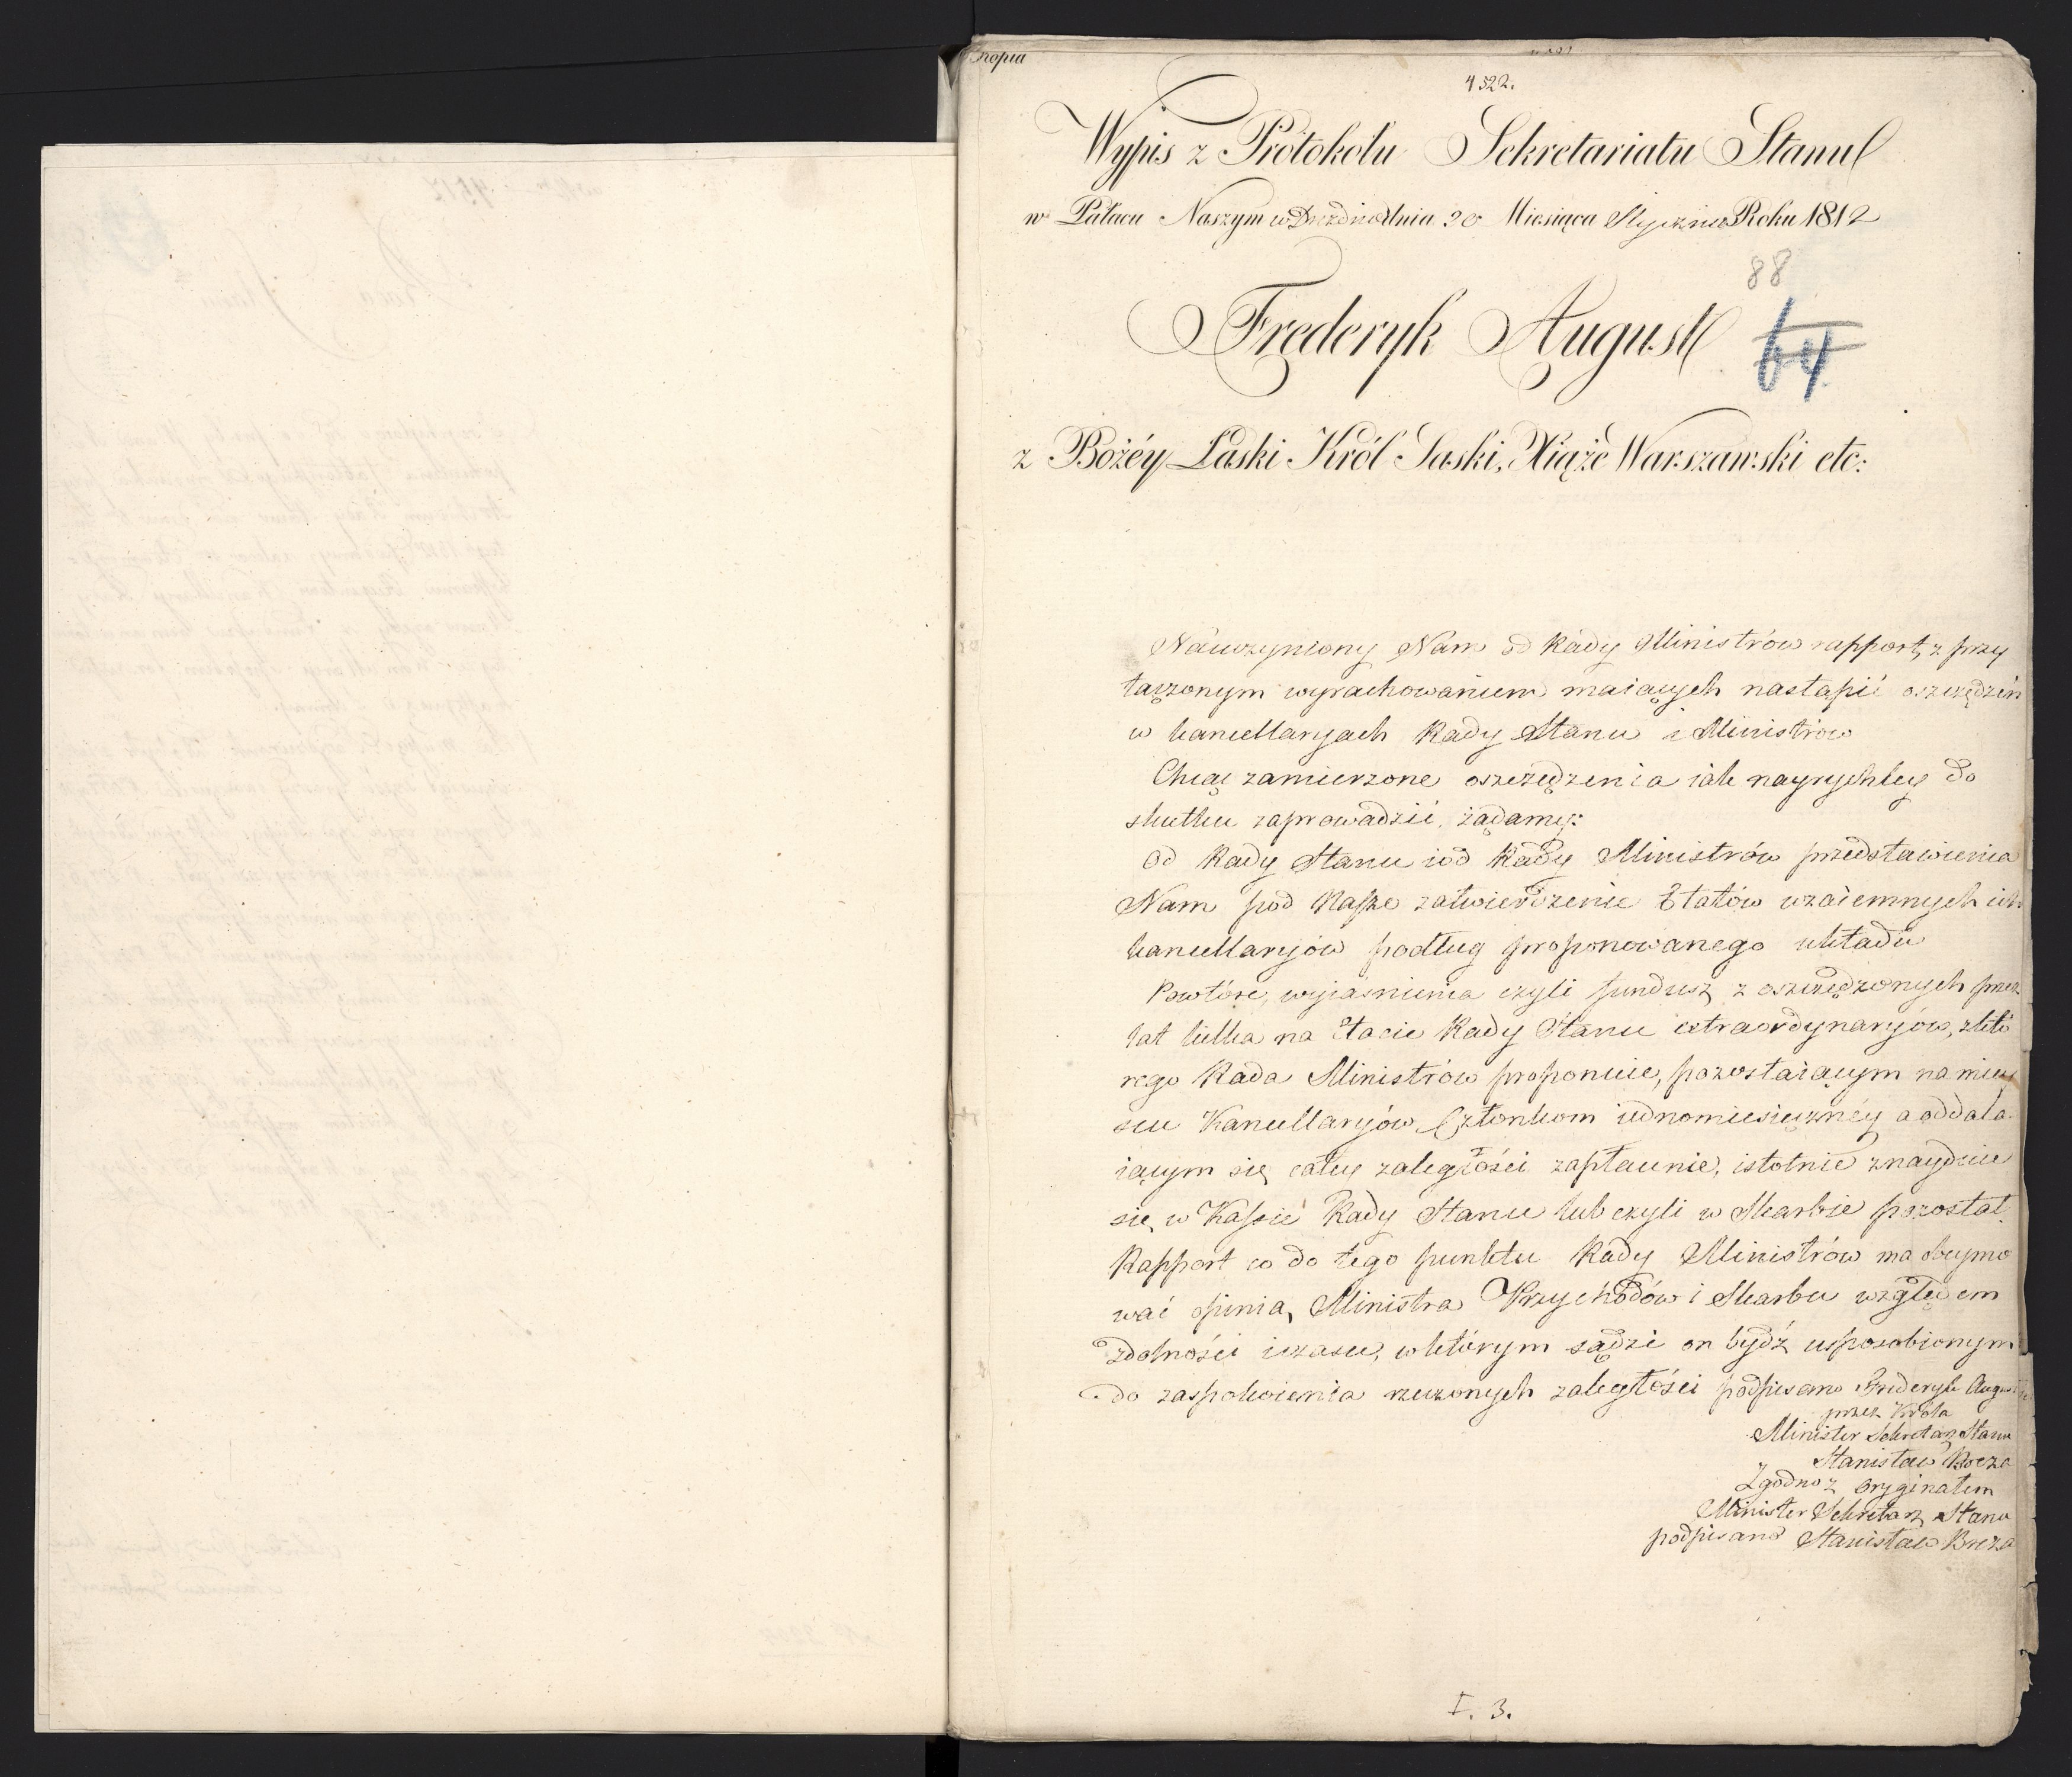 Kopia
4522.
Wypis z Protokółu Sekretariatu Stanu
w Pałacu Naszym w Dreźnie dnia 20 Miesiąca Stycznia Roku 1812
88
64
Frederyk August
z Bożéy Łaski Król Saski, Xiąże Warszawski etc:
Na uczyniony Nam od Rady Ministrów rapport, z przy
łączonym wyrachowaniem maiących nastąpić oszczędzeń
w kancellaryach Rady Stanu i Ministrów
Chcąc zamierzone oszczędzenia iak nayrychley do
skutku zaprowadzić, żądamy:
Od Rady Stanu i od Rady Ministrów przedstawienia
Nam pod Nasze zatwierdzenie Etatów wzaiemnych ich
kancellaryów podług proponowanego układu
Powtóre, wyiasnienia czyli fundusz z oszczędzonych przez
lat kilka na Etacie Rady Stanu extraordynaryów, z któ
rego Rada Ministrów proponuie, pozostaiącym na miey
scu Kancellaryów Członkom iednomiesięcznéy a oddala
iącym się całey zaległości zapłacenie, istotnie znayduie
się w Kassie Rady Stanu lub czyli w Skarbie pozostał.
Rapport co do tego punktu Rady Ministrów ma obeymo
wać opinią Ministra Przychodów i Skarbu względem
zdolności i czasu, w którym sądzi on bydź usposobionym
do zaspokoienia rzeczonych zaległości podpisano Frideryk August
przez Króla
Minister Sekretarz Stanu
Stanisław Breza
Zgodno z oryginałem
Minister Sekretarz Stanu
podpisano Stanisław Breza
I. 3.